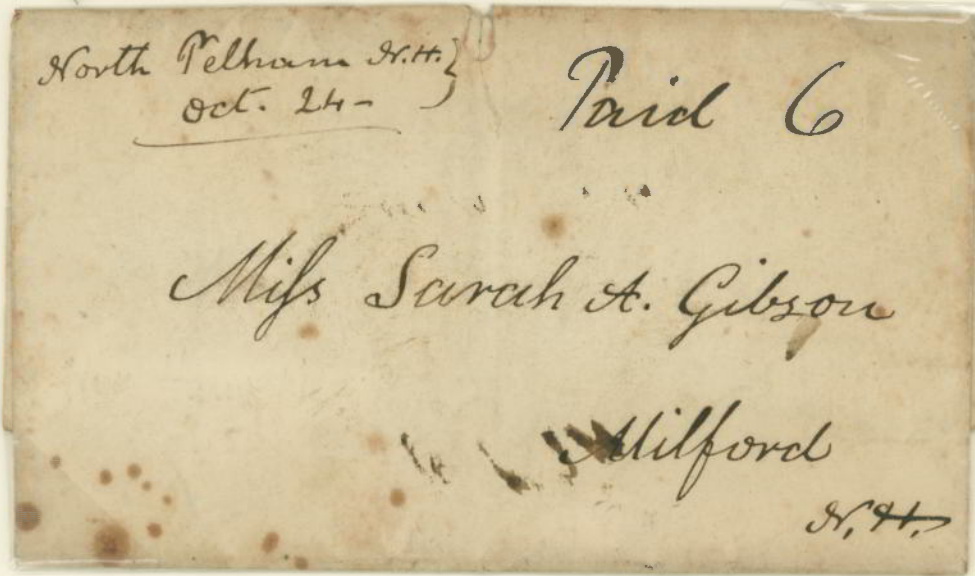 North Pelham N.H.}
Oct. 24-
Paid 6
Miſs Sarah A. Gibson
Milford
N.H.